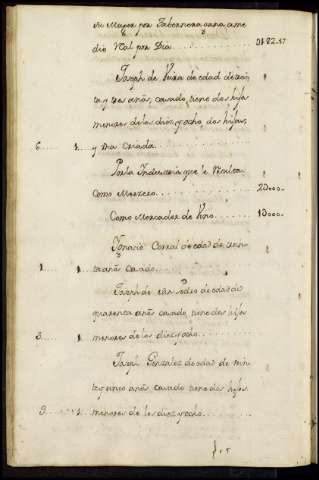 su Muger por Tabernera gana a me
dio Real por Dia ........ 0182.17
Joseph de Neira de edad de trein
ta y tres años, casado, tiene dos hijos
menores de los diez y ocho, dos hijas,
6.... 1.. y una criada.
Por la Industria que le Resulta
Como Mercero ........ 2000..
Como Mercader de Vino ........ 1500..
Ignacio Corral de edad de trein
1.... 1.. ta años casado ........
Joseph de San Pedro de edad de
quarenta años casado, tiene dos hijos
3.... 1. menores de los diez y ocho ........
Joseph Gonzalez de edad de vein
te y cinco años casado tiene dos hijos
3.... 1. menores de los diez y ocho ........